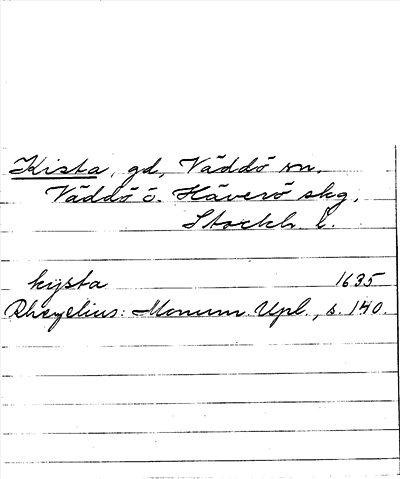 Kista, gd, Väddö sn.
Väddö o. Häverö skg,
Stockh. l.
kijsta 1635
Rhezelius: Monum. Upl., s. 140.